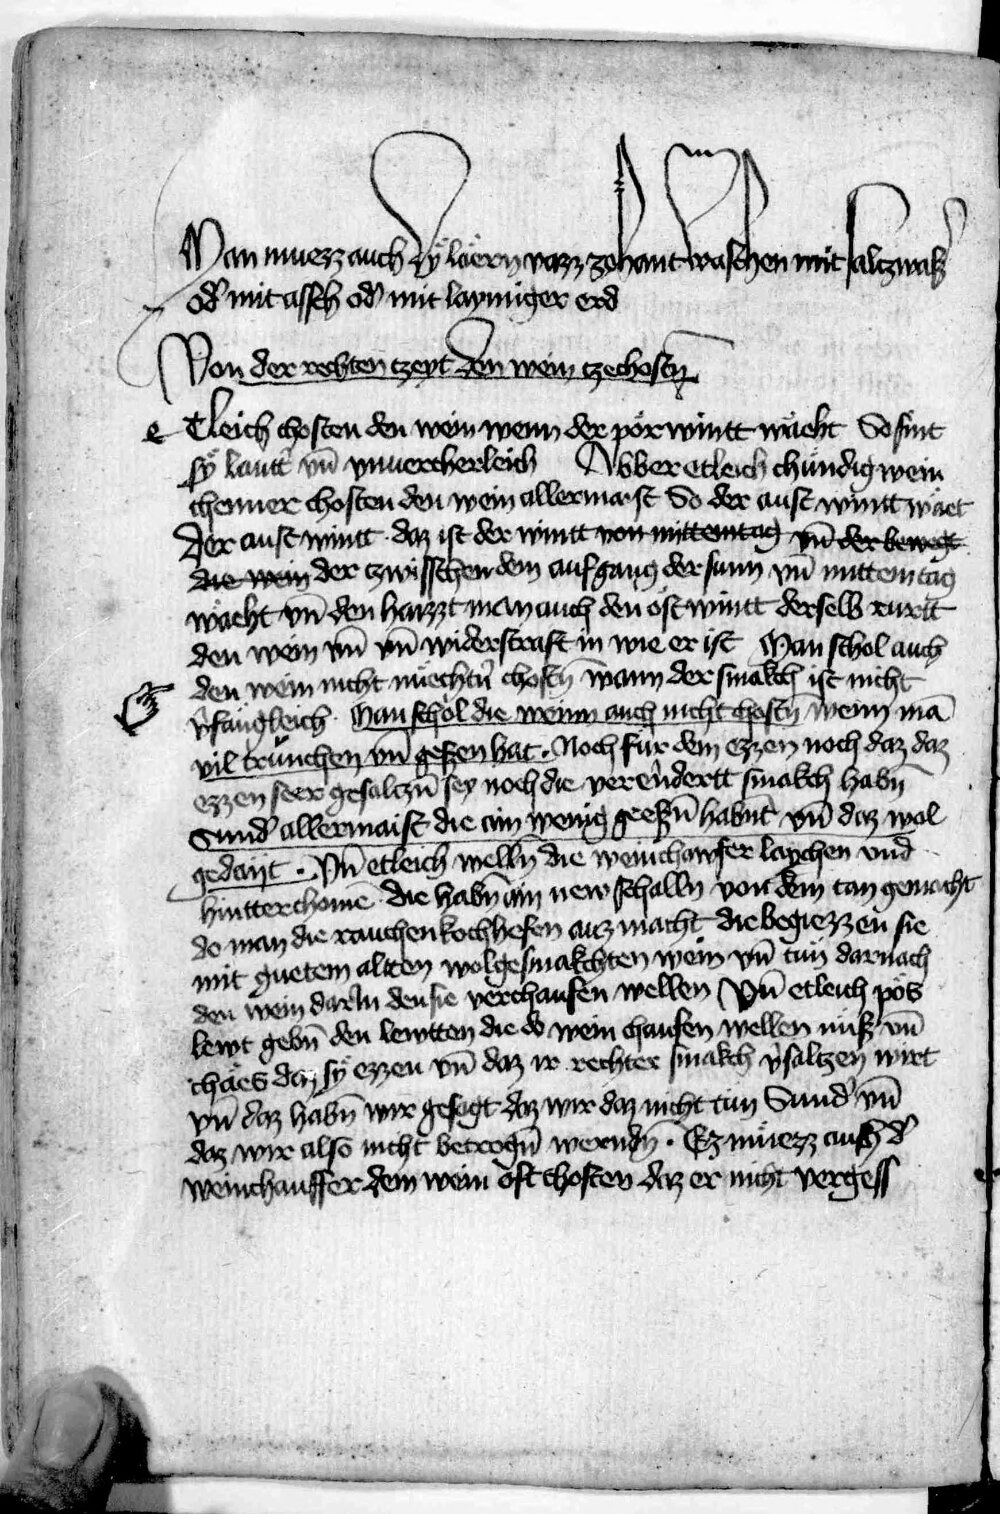 Man muezz auch dÿ läern vazz zehant waschen mit salczwasser
od' mit assch od' mit laymiger erd
Von der rechten czeyt den wein czechostn̄
e Etleich chosten den wein wenn der pörwintt wäeht So sint
sÿ lautt' vn̄ vnuercherleich Abber etleich chündig wein
chenner chosten den wein allermaist So der aust wintt wäet
Der aust wintt · daz ist der wintt von mittemtag vn̄ der bewegt
die wein der czwisschen dem aufgang der sunn vn̄ mittemtag
wäeht vn̄ den haizzt man auch den ostwintt derselb rurtt
den wein vn̄ vn̄ widerstraft in wie er ist Man schol auch
den wein nicht nüechtn̄ chostn̄ wann der smakch ist nicht
v'fängleich · Man schol die wein auch nicht chostn̄ wenn mā
vil trunchen vn̄ gessen hat · Noch fur dem ezzen noch daz daz
ezzen seer gesalczn̄ sey noch die verendertt smakch habn̄
Sund' allermaist die ain wenig geessn̄ habnt vn̄ daz wol
gedaut · Vn̄ etleich welln̄ die weinchawfer laychen vnd
hintterchomē · die habn̄ ain new schalln von dem tan gemacht
do man die rauchen kochhefen auz macht die begiezzen sie
mit guetem allten wolgesmakchten wein vn̄ tün darnach
den wein darin den sie verchaufen wellen Vn̄ etleich pös
lewt gebn̄ den lewtten die do wein chaufen wellen nüss vn̄
chäes daz sÿ ezzen vn̄ daz ir rechter smakch v'saltzen wirt
vn̄ daz habn̄ wir gesagt daz wir daz nicht tün Sund' vn̄
daz wir also nicht betrogn̄ werndn̄ · Ez müezz auch d'
weinchauffer dem wein oft chosten daz er nicht vergess